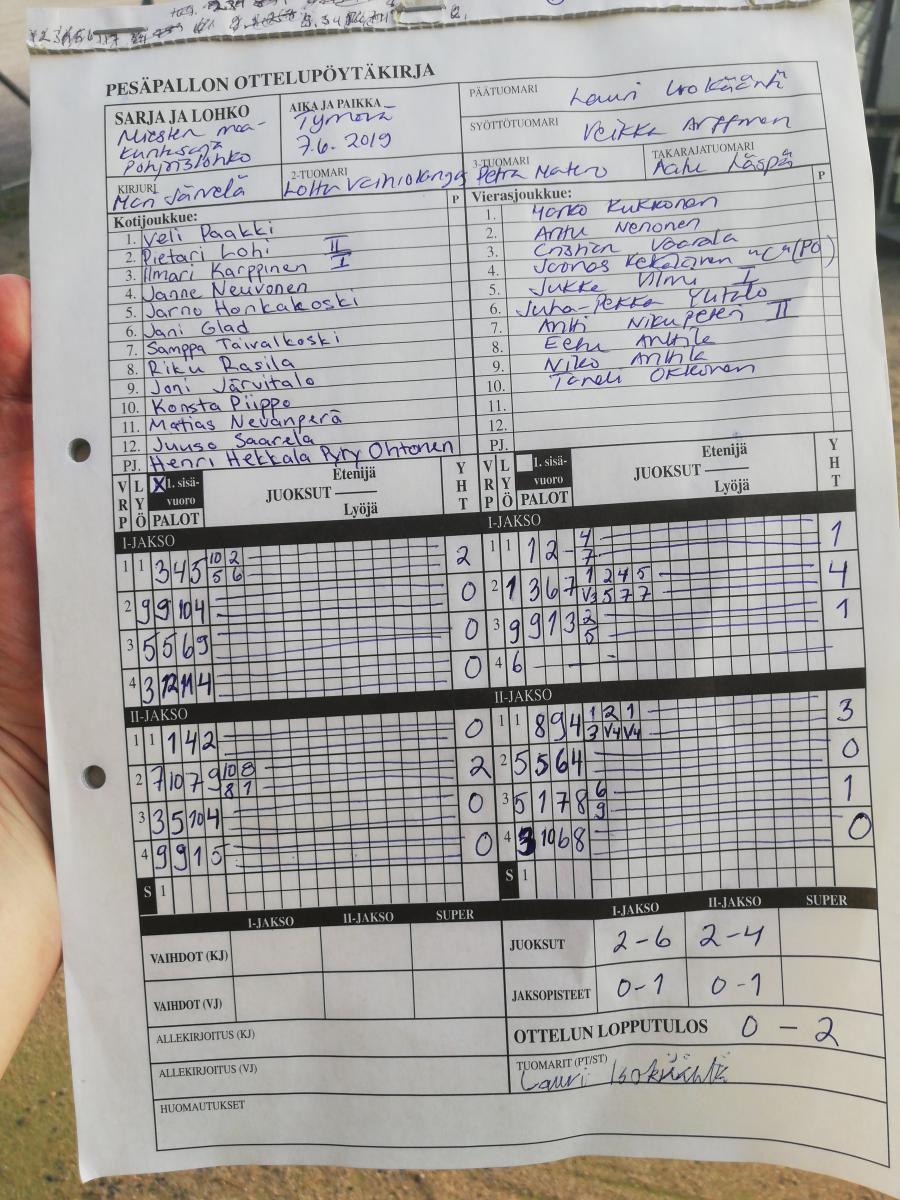 PESÄPALLON OTTELUPÖYTÄKIRJA
SARJA JA LOHKO
Miesten maa-
kuntasarja
Pohjoislohko
AIKA JA PAIKKA
Tyrnävä
7.6.2019
PÄÄTUOMARI
Lauri Isokääntä
SYÖTTÖTUOMARI
Veikka Arffman
KIRJURI
Mari Järvelä
2-TUOMARI
Lotta Vaihiokangas
3-TUOMARI
Petra
TAKARAJATUOMARI
Aatu
Kotijoukkue:
P
1. Veli Paakki
2. Pietari Lohi II
3. Ilmari Karppinen I
4. Janne Neuvonen
5. Jarno Honkakoski
6. Jani Glad
7. Samppa Taivalkoski
8. Riku Rasila
9. Joni Järvitalo
10. Konsta Piippo
11. Matias Nevanperä
12. Juuso Saarela
PJ. Henri Hekkala Pyry Ohtonen
Vierasjoukkue:
P
1. Marko Kukkonen
2. Antu Nenonen
3. Cristian Vaarala
4. Joonas Kekäläinen "C" (PO)
5. Jukka I
6. Juha-Pekka Ylitalo
7. Antti Nikupeteri II
8. Eetu Anttila
9. Niko Anttila
10. Taneli Okkonen
11.
12.
PJ.
VRP LYÖ X 1. sisä-
vuoro
PALOT
Etenijä
JUOKSUT
Lyöjä
YHT
VRP LYÖ 1. sisä-
vuoro
PALOT
Etenijä
JUOKSUT
Lyöjä
YHT
I-JAKSO
1 1 3 4 5 10 2 2
5 6
2 9 9 10 4 0
3 5 5 6 9 0
4 3 12 11 4 0
I-JAKSO
1 1 1 2 - 4 1
7
2 1 3 6 7 1 2 4 5 4
V3 5 7 7
3 9 9 1 3 2 1
5
4 6 - - -
II-JAKSO
1 1 1 4 2 0
2 7 10 7 9 10 8 2
8 1
3 3 5 10 4 0
4 9 9 1 5 0
S 1
II-JAKSO
1 1 8 9 4 1 2 1 3
3 V4 V4
2 5 5 6 4 0
3 5 1 7 8 6 1
9
4 3 10 6 8 0
S 1
I-JAKSO II-JAKSO SUPER
VAIHDOT (KJ)
VAIHDOT (VJ)
ALLEKIRJOITUS (KJ)
ALLEKIRJOITUS (VJ)
HUOMAUTUKSET
I-JAKSO II-JAKSO SUPER
JUOKSUT 2-6 2-4
JAKSOPISTEET 0-1 0-1
OTTELUN LOPPUTULOS 0 - 2
TUOMARIT (PT/ST)
Lauri Isokääntä